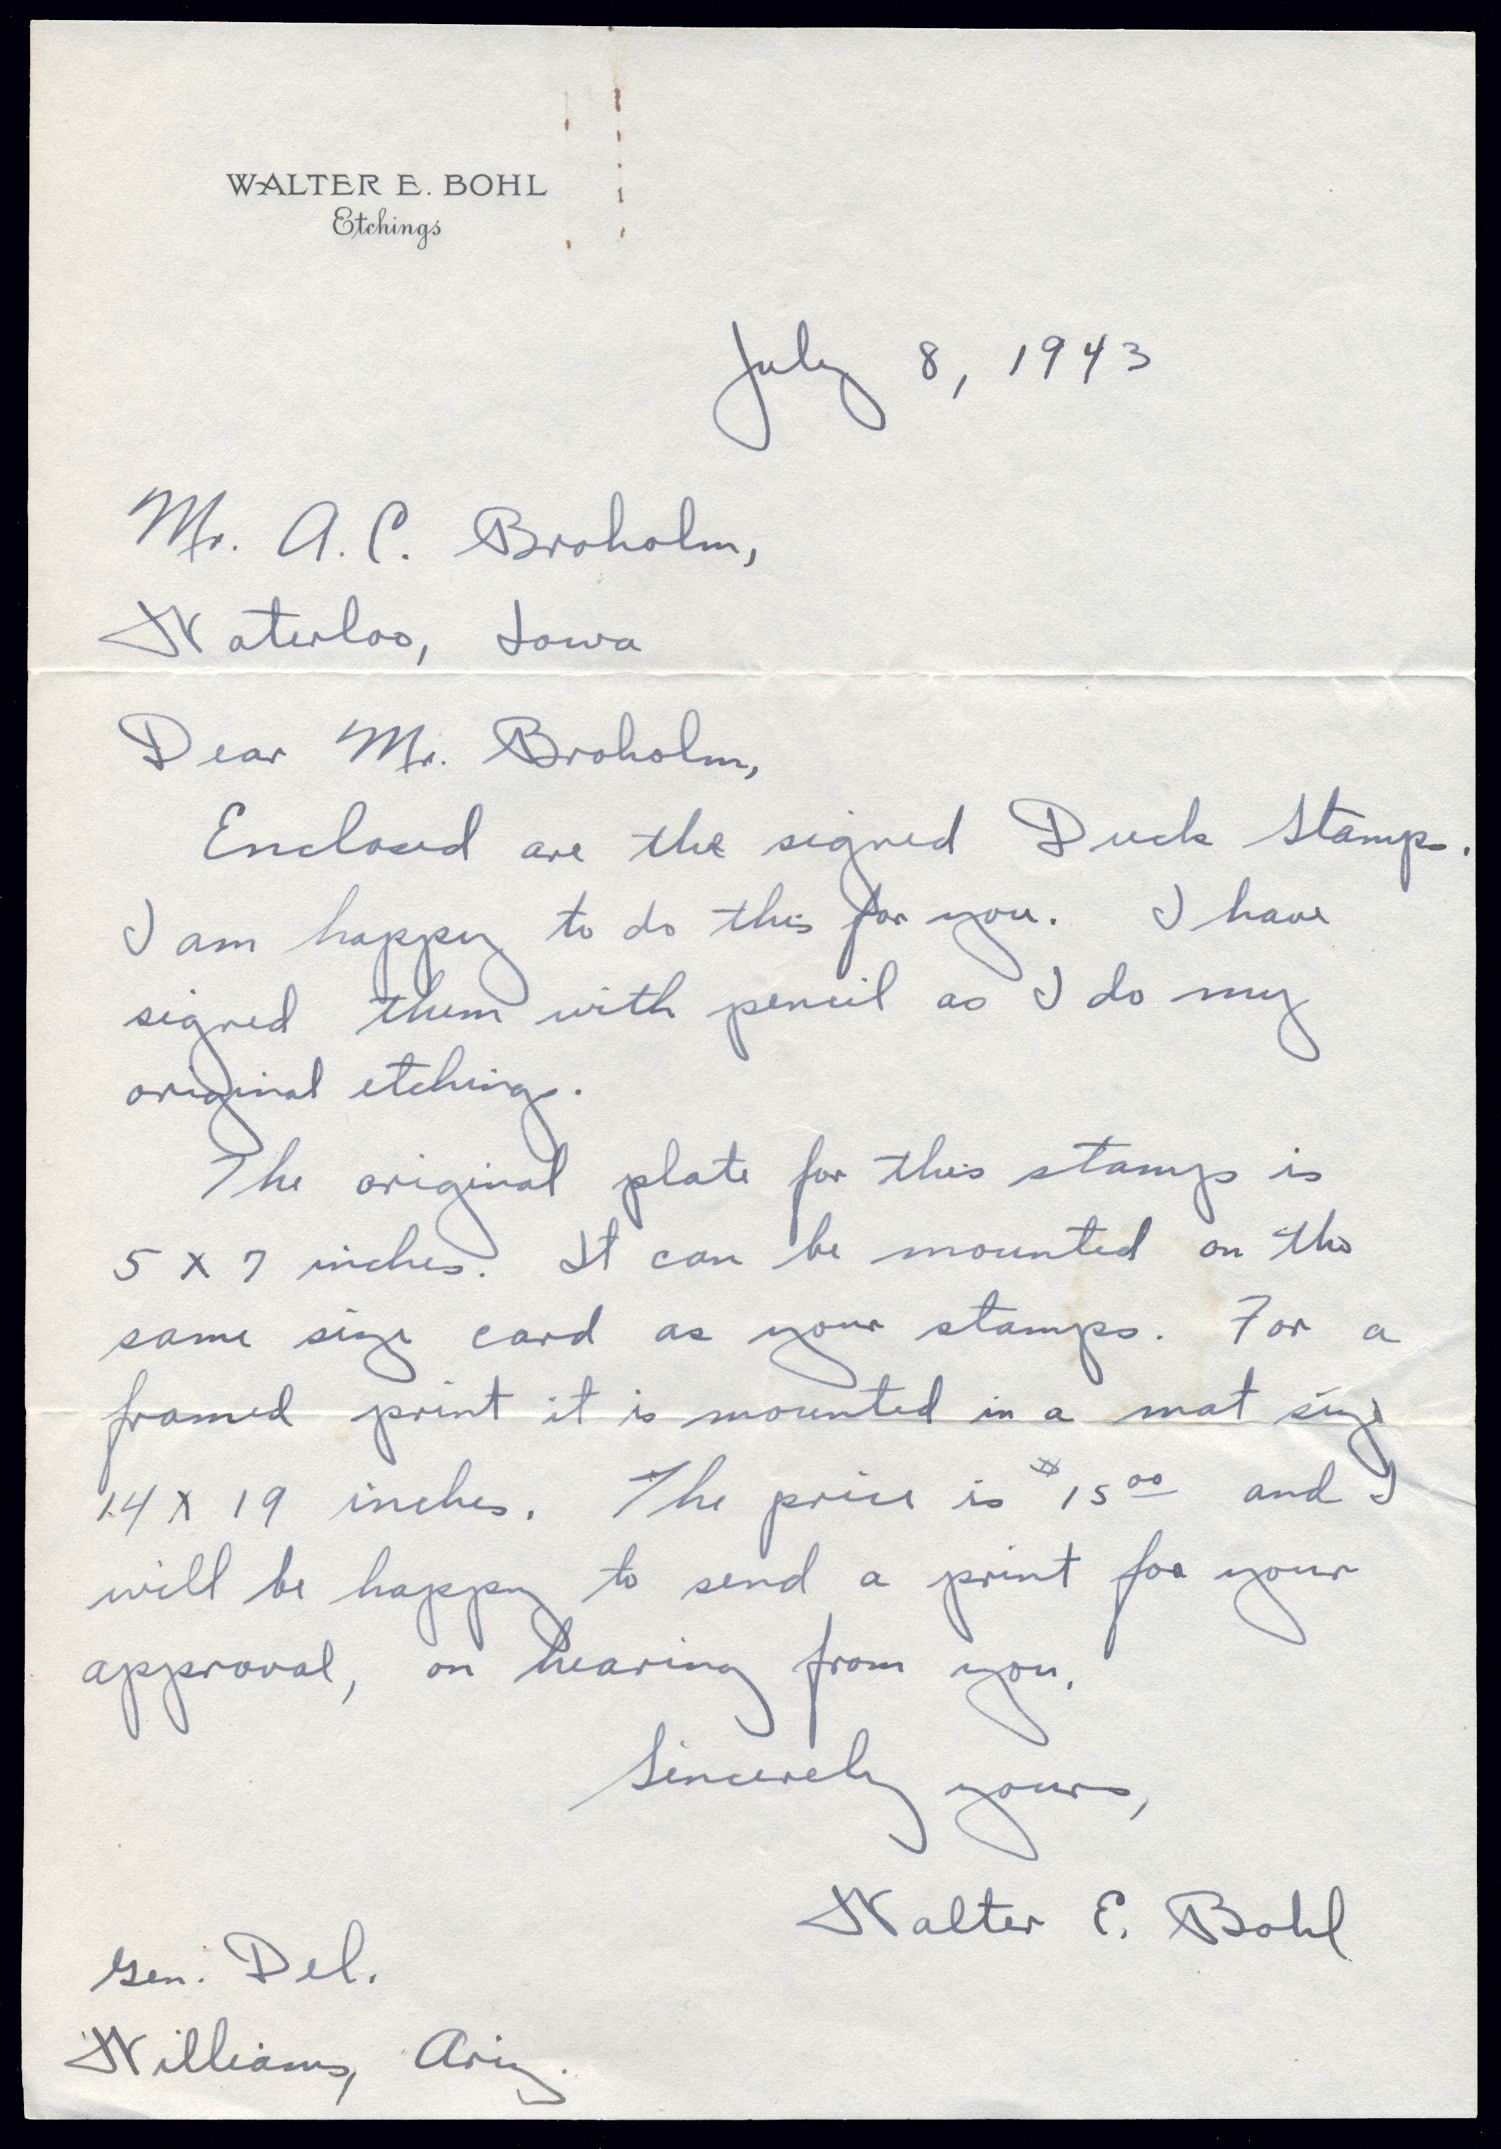 WALTER E. BOHL
Etchings
July 8, 1943
Mr. A. C. Broholm,
Waterloo, Iowa
Dear Mr. Broholm,
Enclosed are the signed Duck Stamps.
I am happy to do this for you. I have
signed them with pencil as I do my
original etchings.
The original plate for this stamp is
5 X 7 inches. It can be mounted on the
same size card as your stamps. For a
framed print it is mounted in a mat size
14 X 19 inches. The price is $15.00 and I
will be happy to send a print for your
approval, on hearing from you.
Sincerely yours,
Walter E. Bohl
Gen. Del.
Williams, Ariz.